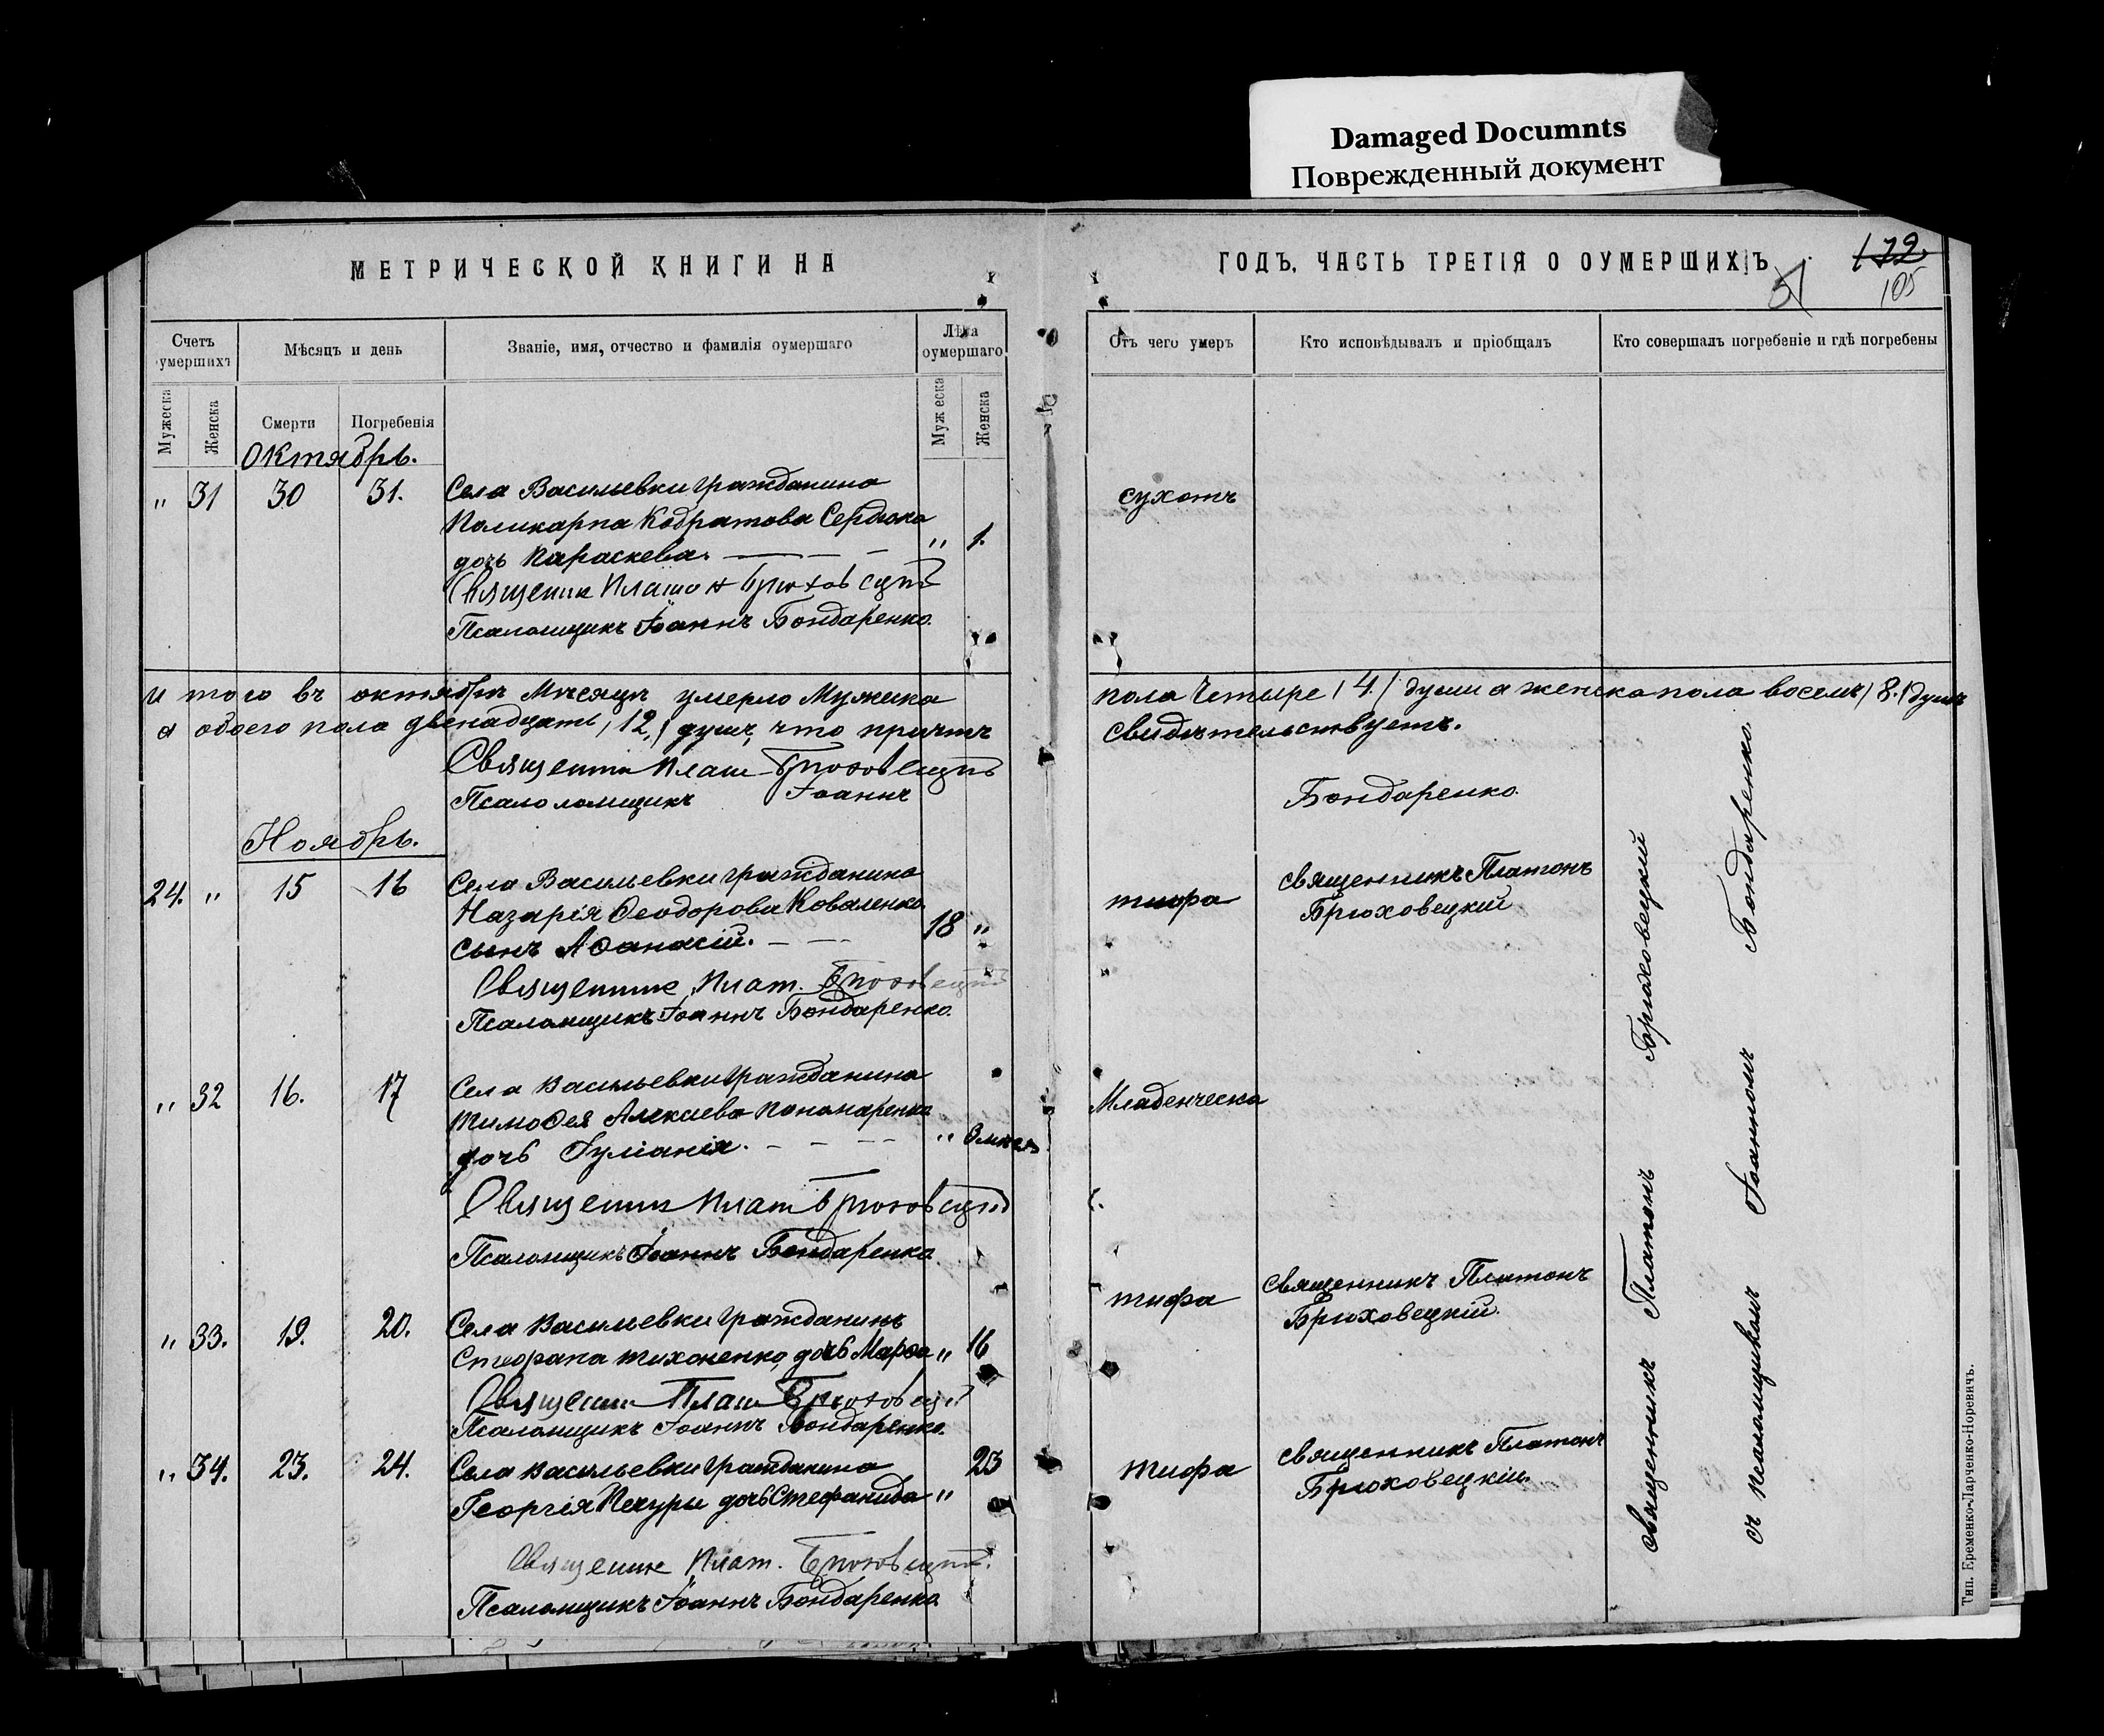 Damaged Documnts
Поврежденный документ
МЕТРИЧЕСКОЙ КНИГИ НА
ГОДЪ, ЧАСТЬ ТРЕТІЯ О ОУМЕРШИХЪ
172.
105
Счетъ умершихъ
Мѣсяцъ и день
Званіе, имя, отчество и фамилія оумершаго
Лѣта оумершаго
Отъ чего умеръ
Кто исповѣдывалъ и пріобщалъ
Кто совершалъ погребеніе и гдѣ погребены
Мужеска
Женска
Смерти
Погребенія
Муж еска
Женска
Октябрь.
" 31 30 31. Села Васильевки гражданина
Поликарпа Кодратова Сердюка
дочь Параскева. " 1.
сухотъ
Священик Платон Брюховецкій
Псаломщикъ Іоаннъ Бондаренко.
и того въ октябрѣ Мѣсяцѣ умерло Мужска пола Четыре /4./ души а женска пола восемь /8./ душъ
а обоего пола двенадцать /12./ душъ, что причтъ свидѣтельствуетъ.
Священик Плат Брюховецкій
Псалоломщикъ Іоаннъ Бондаренко.
Ноябрь.
24. " 15 16 Села Васильевки гражданина
Назарія Ѳеодорова Коваленко
сынъ Аѳанасій. 18 "
тифа
священникъ Платонъ
Брюховецкій
Священник Плат. Брюховецкій
Псаломщикъ Іоаннъ Бондаренко.
" 32 16. 17 Села Васильевки гражданина
Тимоѳея Алексиева Пономаренко
дочь Іуліанія. "
Младенческа
Священик Плат Брюховецкій
Псаломщикъ Іоаннъ Бондаренко
" 33. 19. 20. Села Васильевки гражданинъ
Стефана Тихоненко, дочь Марѳа " 16
тифа
священникъ Платонъ
Брюховецкій.
Священик Плат Брюховецкій
Псаломщикъ Іоаннъ Бондаренко.
" 34. 23. 24. Села Васильевки гражданина 23
Георгія Печуры дочь Стефанида "
тифа
священникъ Платонъ
Брюховецкій.
Священик Плат. Брюховецкій.
Псаломщикъ Іоаннъ Бондаренко
священникъ Платонъ Брюховецкій
съ псаломщикомъ Іоанномъ Бондаренко
Тип. Еременко-Ларченко-Норевичъ.